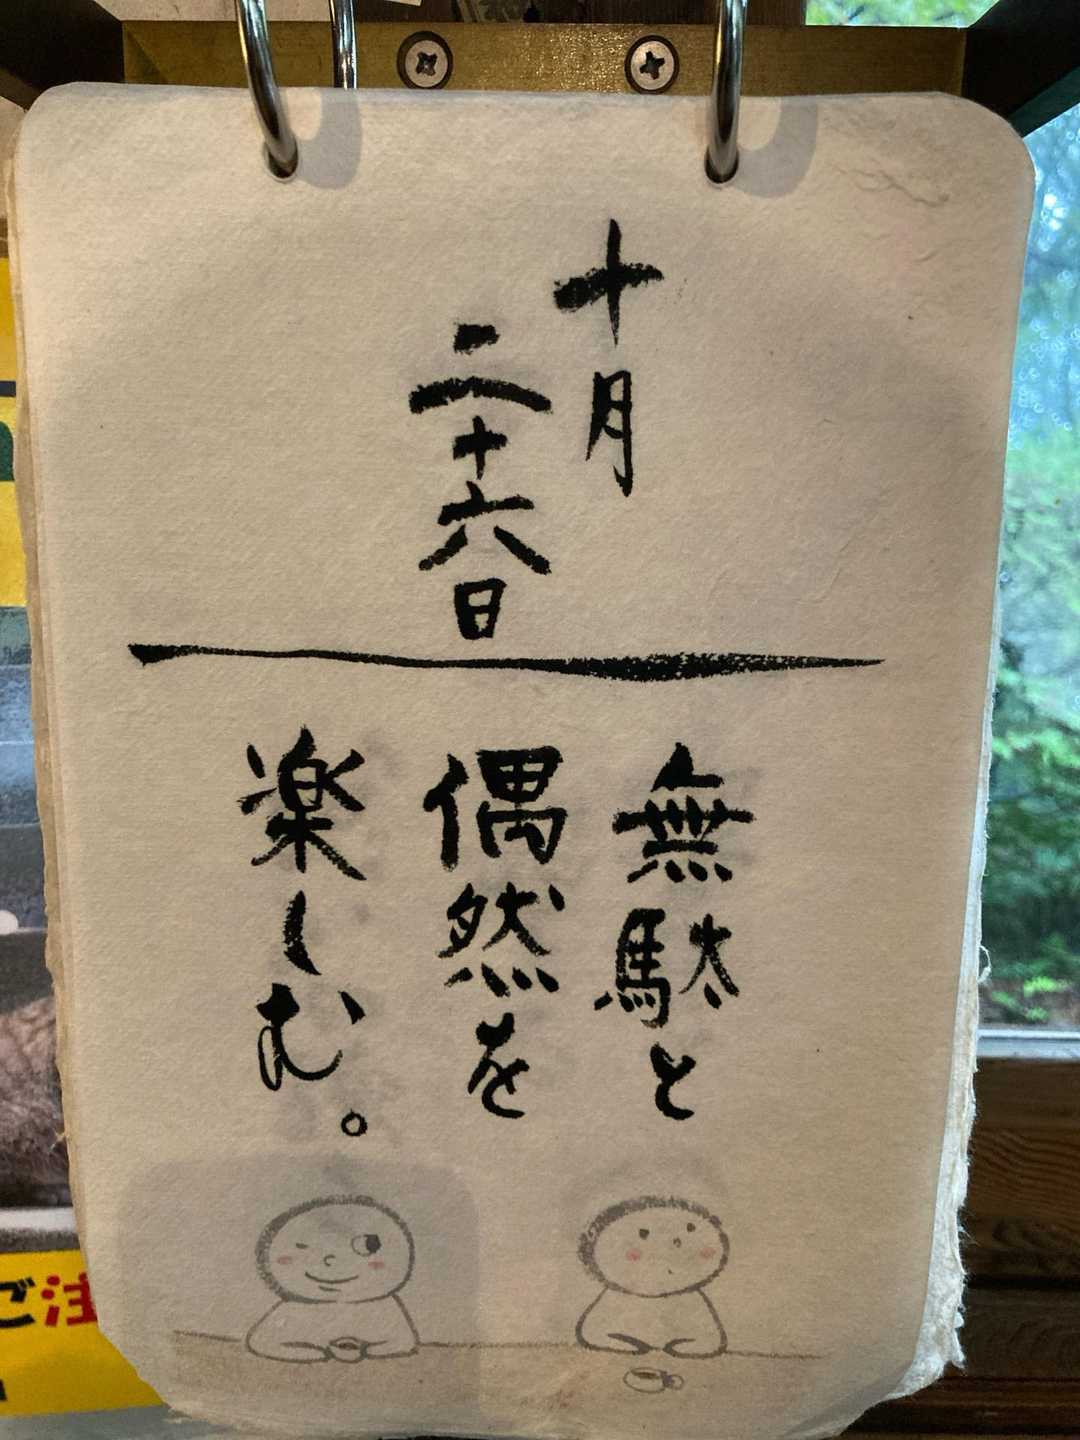 十月
二十六日
無駄と
偶然を
楽しむ。
ご注